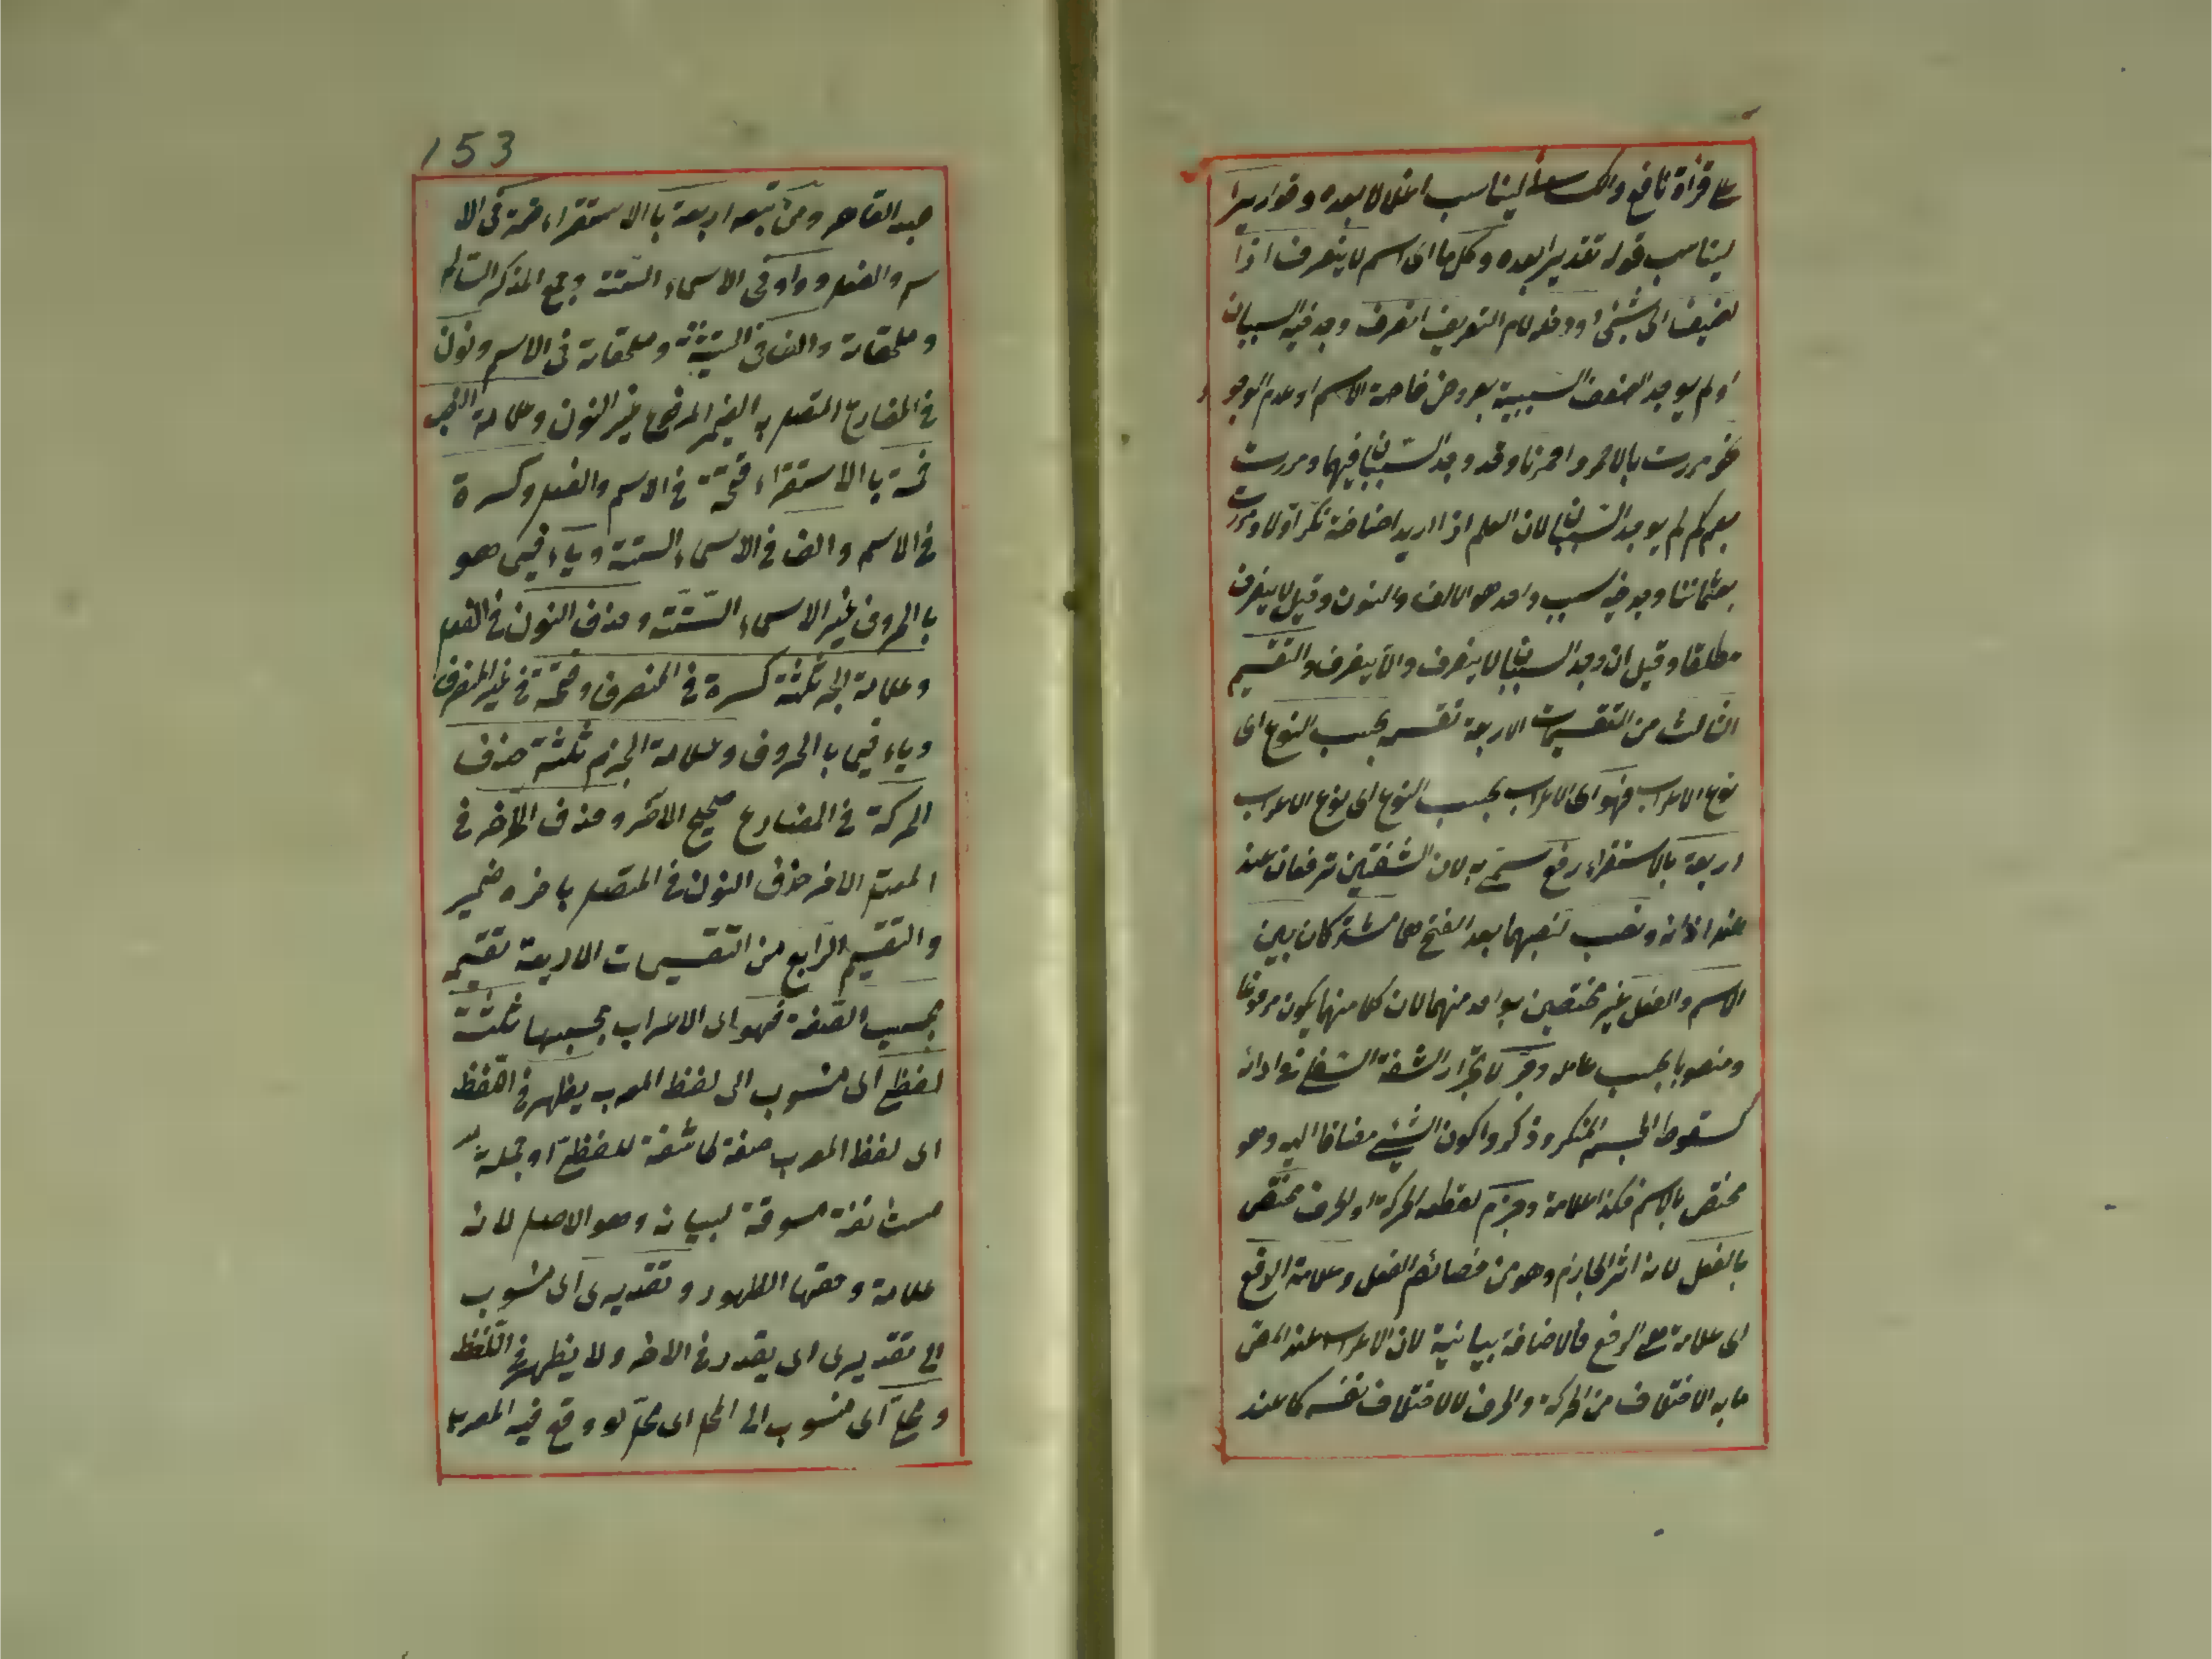 على قراءة نافع والكسائي ليناسب اغلالا بعده وقواريرا
ليناسب قوله تقديرا بعده وكل ما اى اسم لا ينصرف اذا
اضيف الى شئ او دخله لام التعريف انصرف وجد فيه السببان
او لم يوجد لضعف السببية بعروض خاصة الاسم او عدم الوجو د
نحو مررت بالاحمر واحمرنا وقد وجد السببان فيهما ومررت
بعمركم لم يوجد السببان لان العلم اذا اريد اضافته نكر اولا ومررت
بعثماننا وجد فيه سبب واحد هو الالف والنون وقيل لا ينصرف
مطلقا وقيل ان وجد السببان لا ينصرف والا ينصرف والتقسيم
الثالث من التقسيمات الاربعة تقسيمه بحسب النوع اى
نوع الاعراب فهو اى الاعراب بحسب النوع اى نوع الاعراب
اربعة بالاستقراء رفع سمى به لان الشفتين ترفعان عند
عند اذانه ونصب لنصبهما بعد الفتح هما مشتركان بين
الاسم والفعل غير مختصين بواحد منهما لان كلا منهما يكون مرفوعا
ومنصوبا بحسب عامله وجر لانجرار الشفة السفلى فى ادائه
كسقوط الجسم المنكر وذكروا كون الشئ مضافا اليه وهو
مختص بالاسم فكذا علامة وجزم لقطعه الحركة او الحرف مختص
بالفعل لانه اثر الجازم وهو من خصائص الفعل وعلامة الرفع
اى علامة هى الرفع فالاضافة بيانية لان الاعراب عند المص
ما به الاختلاف من الحركة والحرف لا الاختلاف نفسه كما عند
153
عبد القاهر ومن تبعه اربعة بالاستقراء ضمة فى الا
سم والفعل وواو فى الاسماء الستة وجمع المذكر السالم
وملحقاته والف فى التثنية وملحقاته فى الاسم ونون
فى المضارع المتصل به الضمير المرفوع غير النون وعلامة النصب
خمسة بالاستقراء فتحة فى الاسم والفعل وكسرة
فى الاسم والف فى الاسماء الستة وياء فيما هو
بالحروف غير الاسماء الستة وحذف النون فى الفعل
وعلامة الجر ثلثة كسرة فى المنصرف وفتحة فى غير المنصرف
وياء فيما بالحروف وعلامة الجزم ثلثة حذف
الحركة فى المضارع صحيح الاخر وحذف الاخر فى
المعتل الاخر حذف النون فى المتصل باخره ضمير
والتقسيم الرابع من التقسيمات الاربعة تقسيمه
بحسب الصفة فهو اى الاعراب بحسبها ثلثة
لفظى اى منسوب الى لفظ المعرب يظهر فى اللفظ
اى لفظ المعرب صفة كاشفة للفظى او جملة
مستأنفة مسوقة لبيانه وهو الاصل لانه
علامة وحقها الظهور وتقديرى اى منسوب
الى تقديرى اى يقدر فى الاخر ولا يظهر فى اللفظ
ومحلى اى منسوب الى المحل اى محل لو وقع فيه المعرب